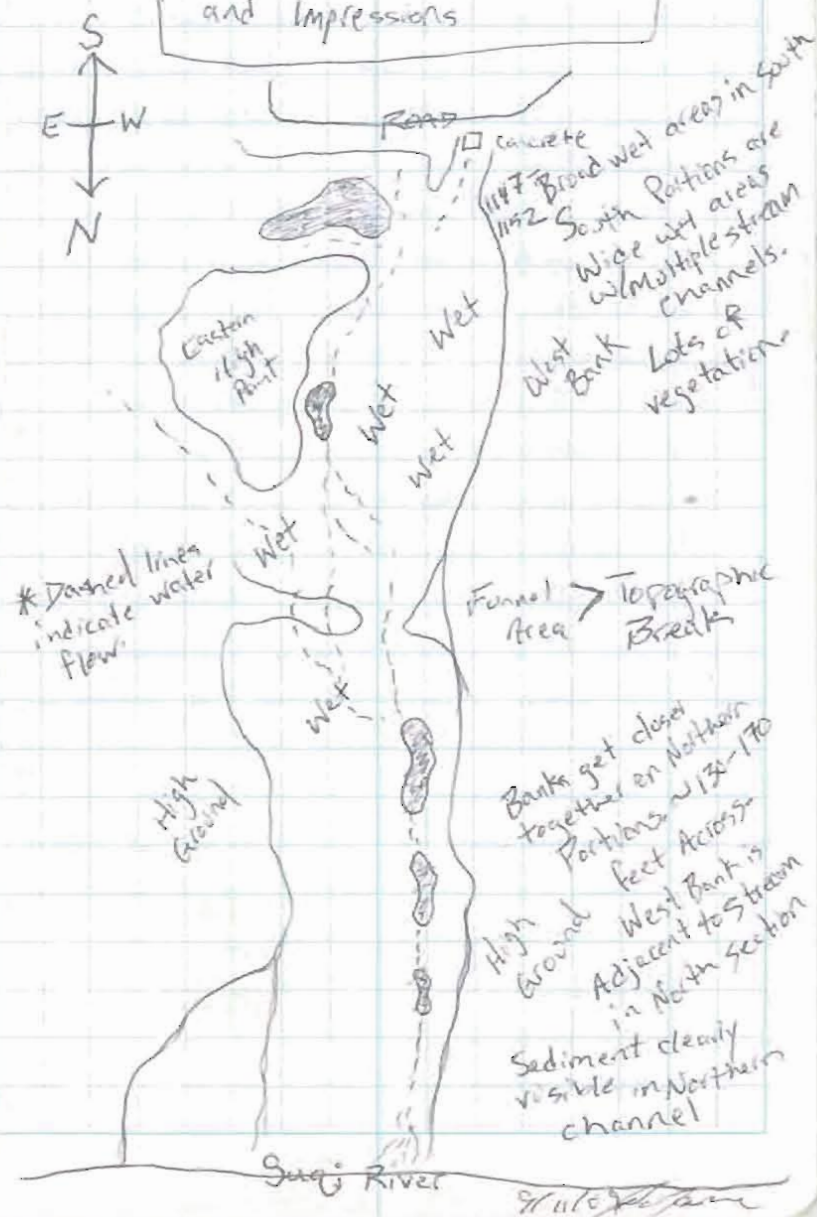 and Impressions
S
E W
N
ROAD
concrete
1147-
1152
Broad wet areas in South
South Portions are
Wide wet areas
w/multiple stream
channels.
Lots of
vegetation.
West
Bank
Eastern
High
Point
Wet
Wet
Wet
Wet
* Dashed lines
indicate water
flow.
Funnel
Area > Topographic
Break
Wet
High
Ground
Banks get closer
together on Northern
Portions. ~130-170
feet Across.
West Bank is
Adjacent to Stream
in North Section
High
Ground
Sediment clearly
visible in Northern
channel
Suqi River